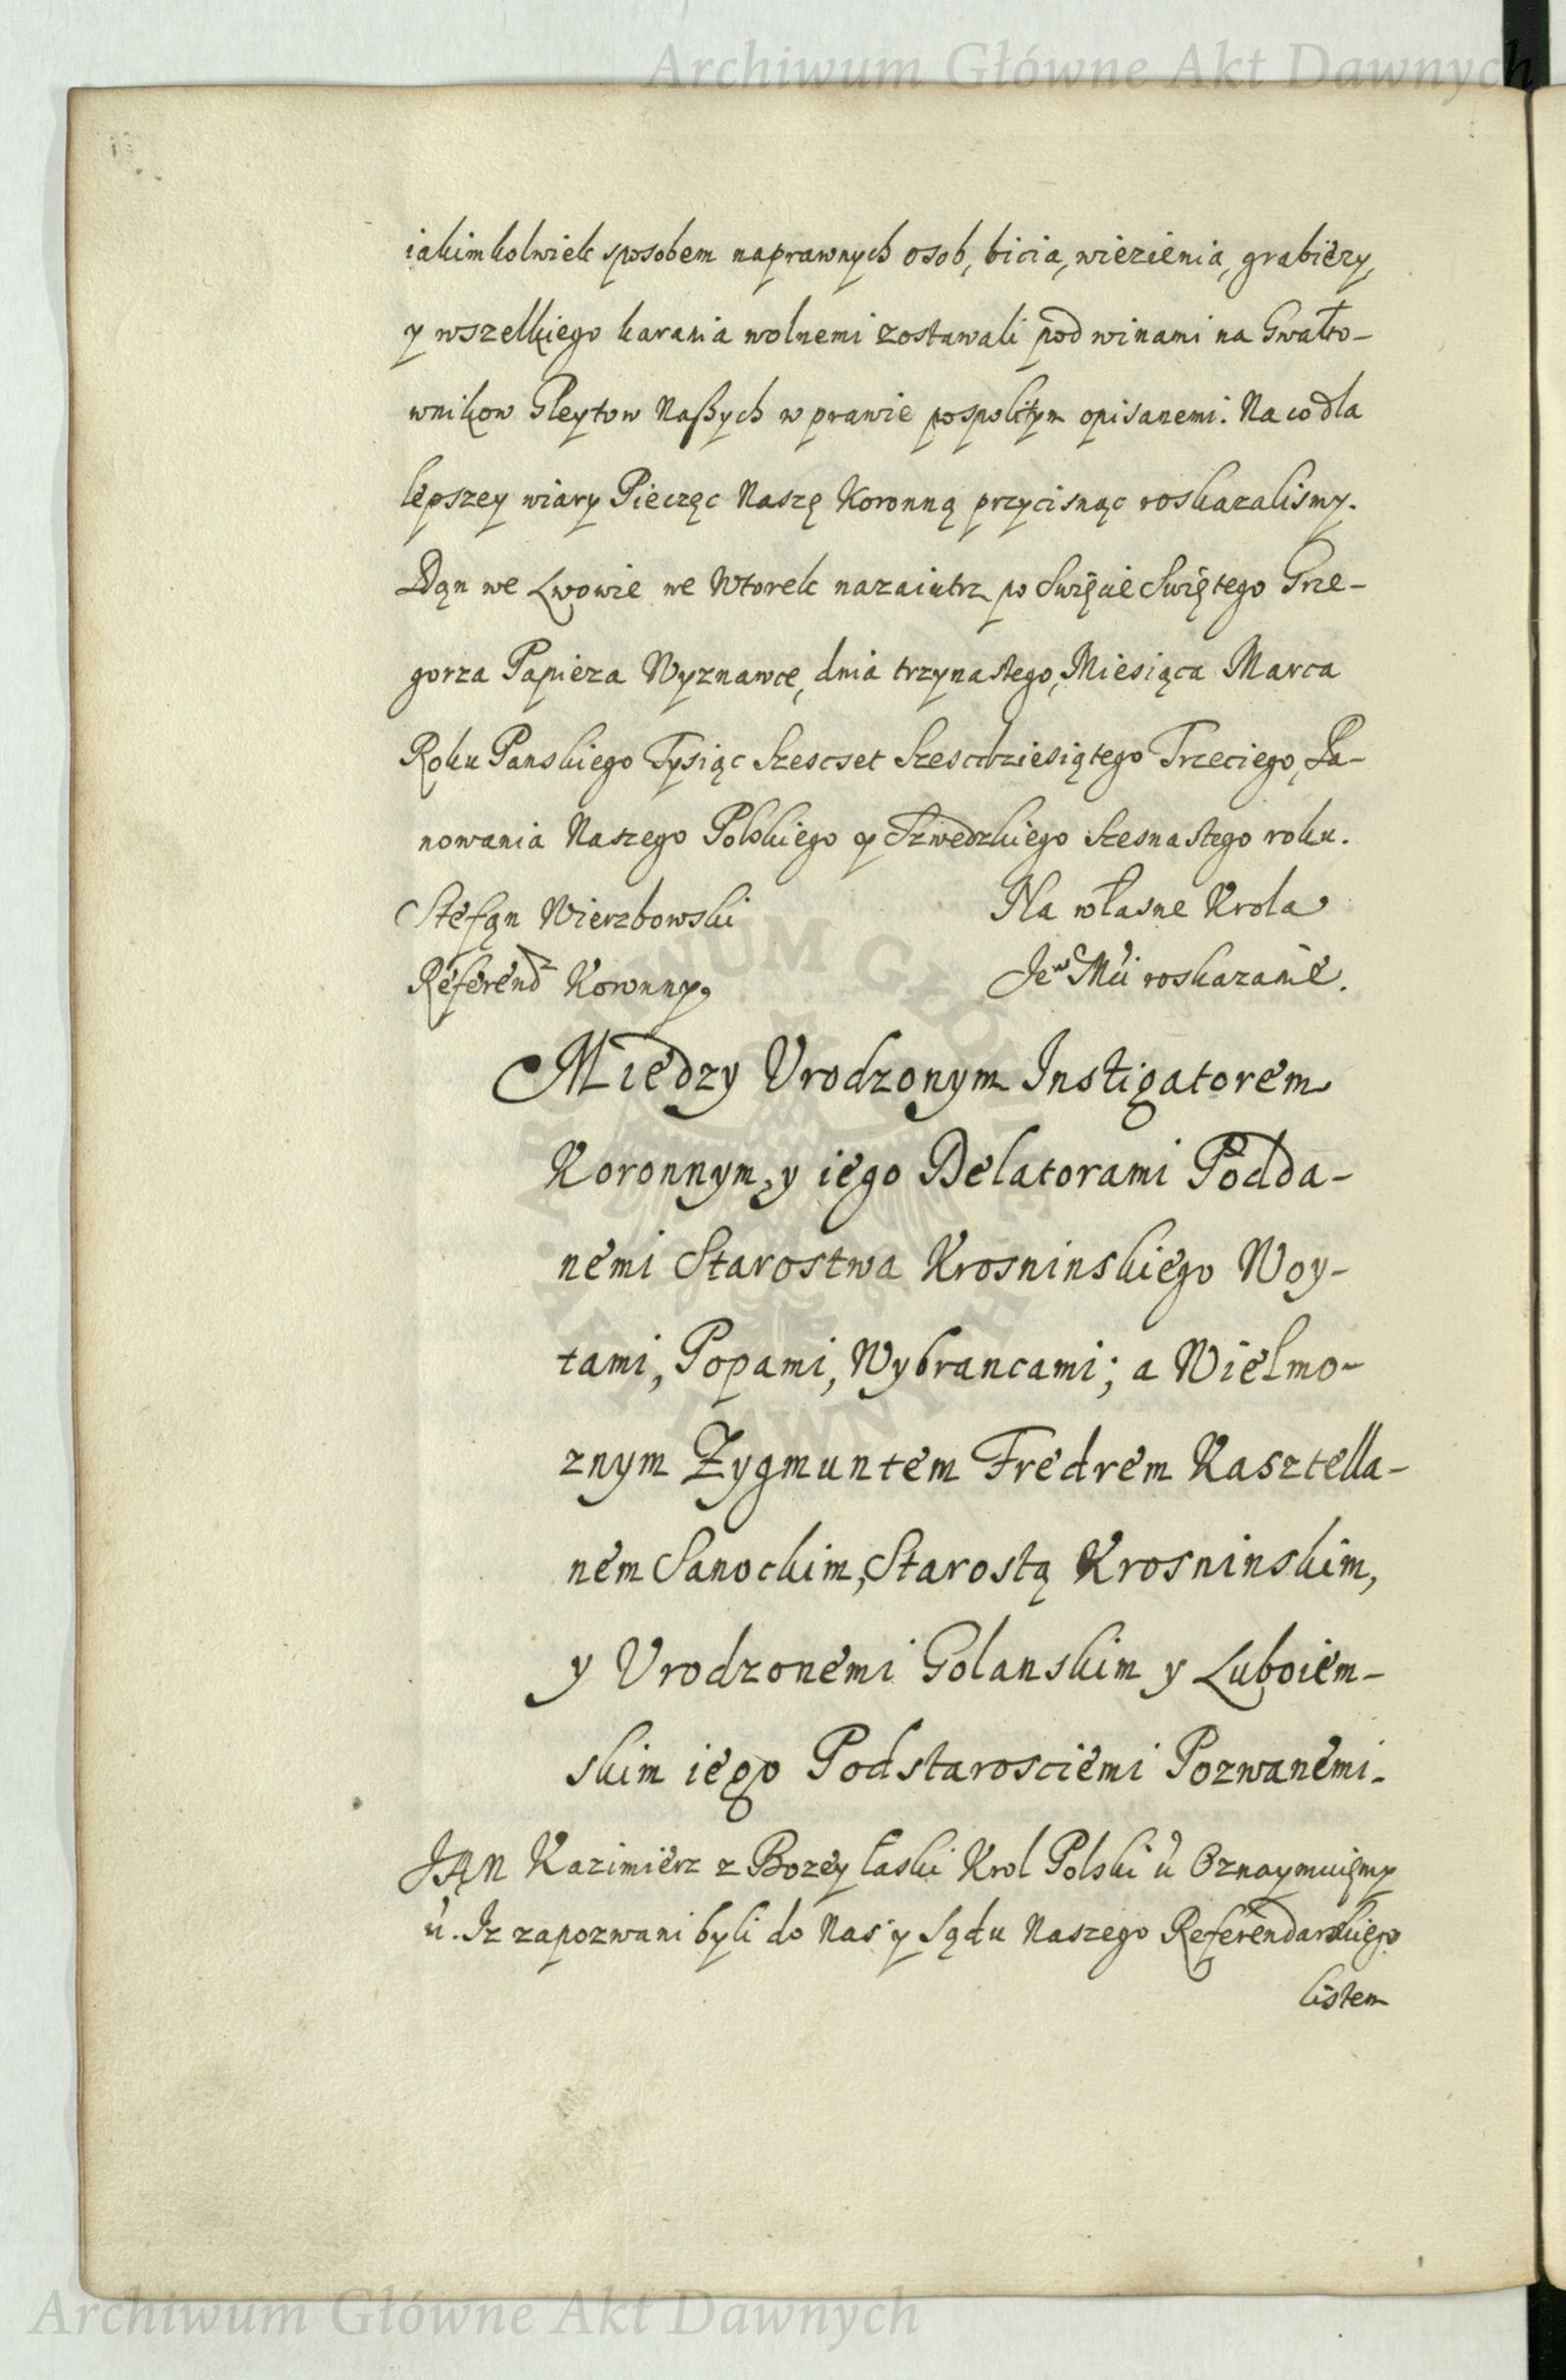 Archiwum Główne Akt Dawnych
iakimkolwiek sposobem naprawnych osob, bicia, wiezienia, grabiezy,
y wszelkiego karania wolnemi zostawali pod winami na Gwałto-
wnikow Gleytow Naßych w prawie pospolitym opisanemi. Na co dla
lepszey wiary Pieczęc Naszę Koronną przycisnąc roskazalismy.
Dąn we Lwowie we Wtorek nazaiutrz po Swięcie Swiętego Grze-
gorza Papieza Wyznawce, dnia trzynastego, Miesiąca Marca
Roku Panskiego Tysiąc Szescset Szescdziesiątego Trzeciego, Pa-
nowania Naszego Polskiego y Szwedzkiego Szesnastego roku.
Stefąn Wierzbowski
Referend^z Koronny.
Na własne Krola
Je^o Mći roskazanie.
Miedzy Vrodzonym Instigatorem
Koronnym, y iego Delatorami Podda-
nemi Starostwa Krosninskiego Woy-
tami, Popami, Wybrancami; a Wielmo-
znym Zygmuntem Fredrem Kasztella-
nem Sanockim, Starostą Krosninskim,
y Vrodzonemi Golanskim y Luboiem-
skim iego Podstarosciemi Pozwanemi.
JĄN Kazimierz z Bozey łaski Krol Polski ù Oznaymuięmy
ù. Iz zapozwani byli do Nas y Sądu Naszego Referendarskiego
listem
ARCHIWUM GŁÓWNE AKT DAWNYCH
Archiwum Główne Akt Dawnych